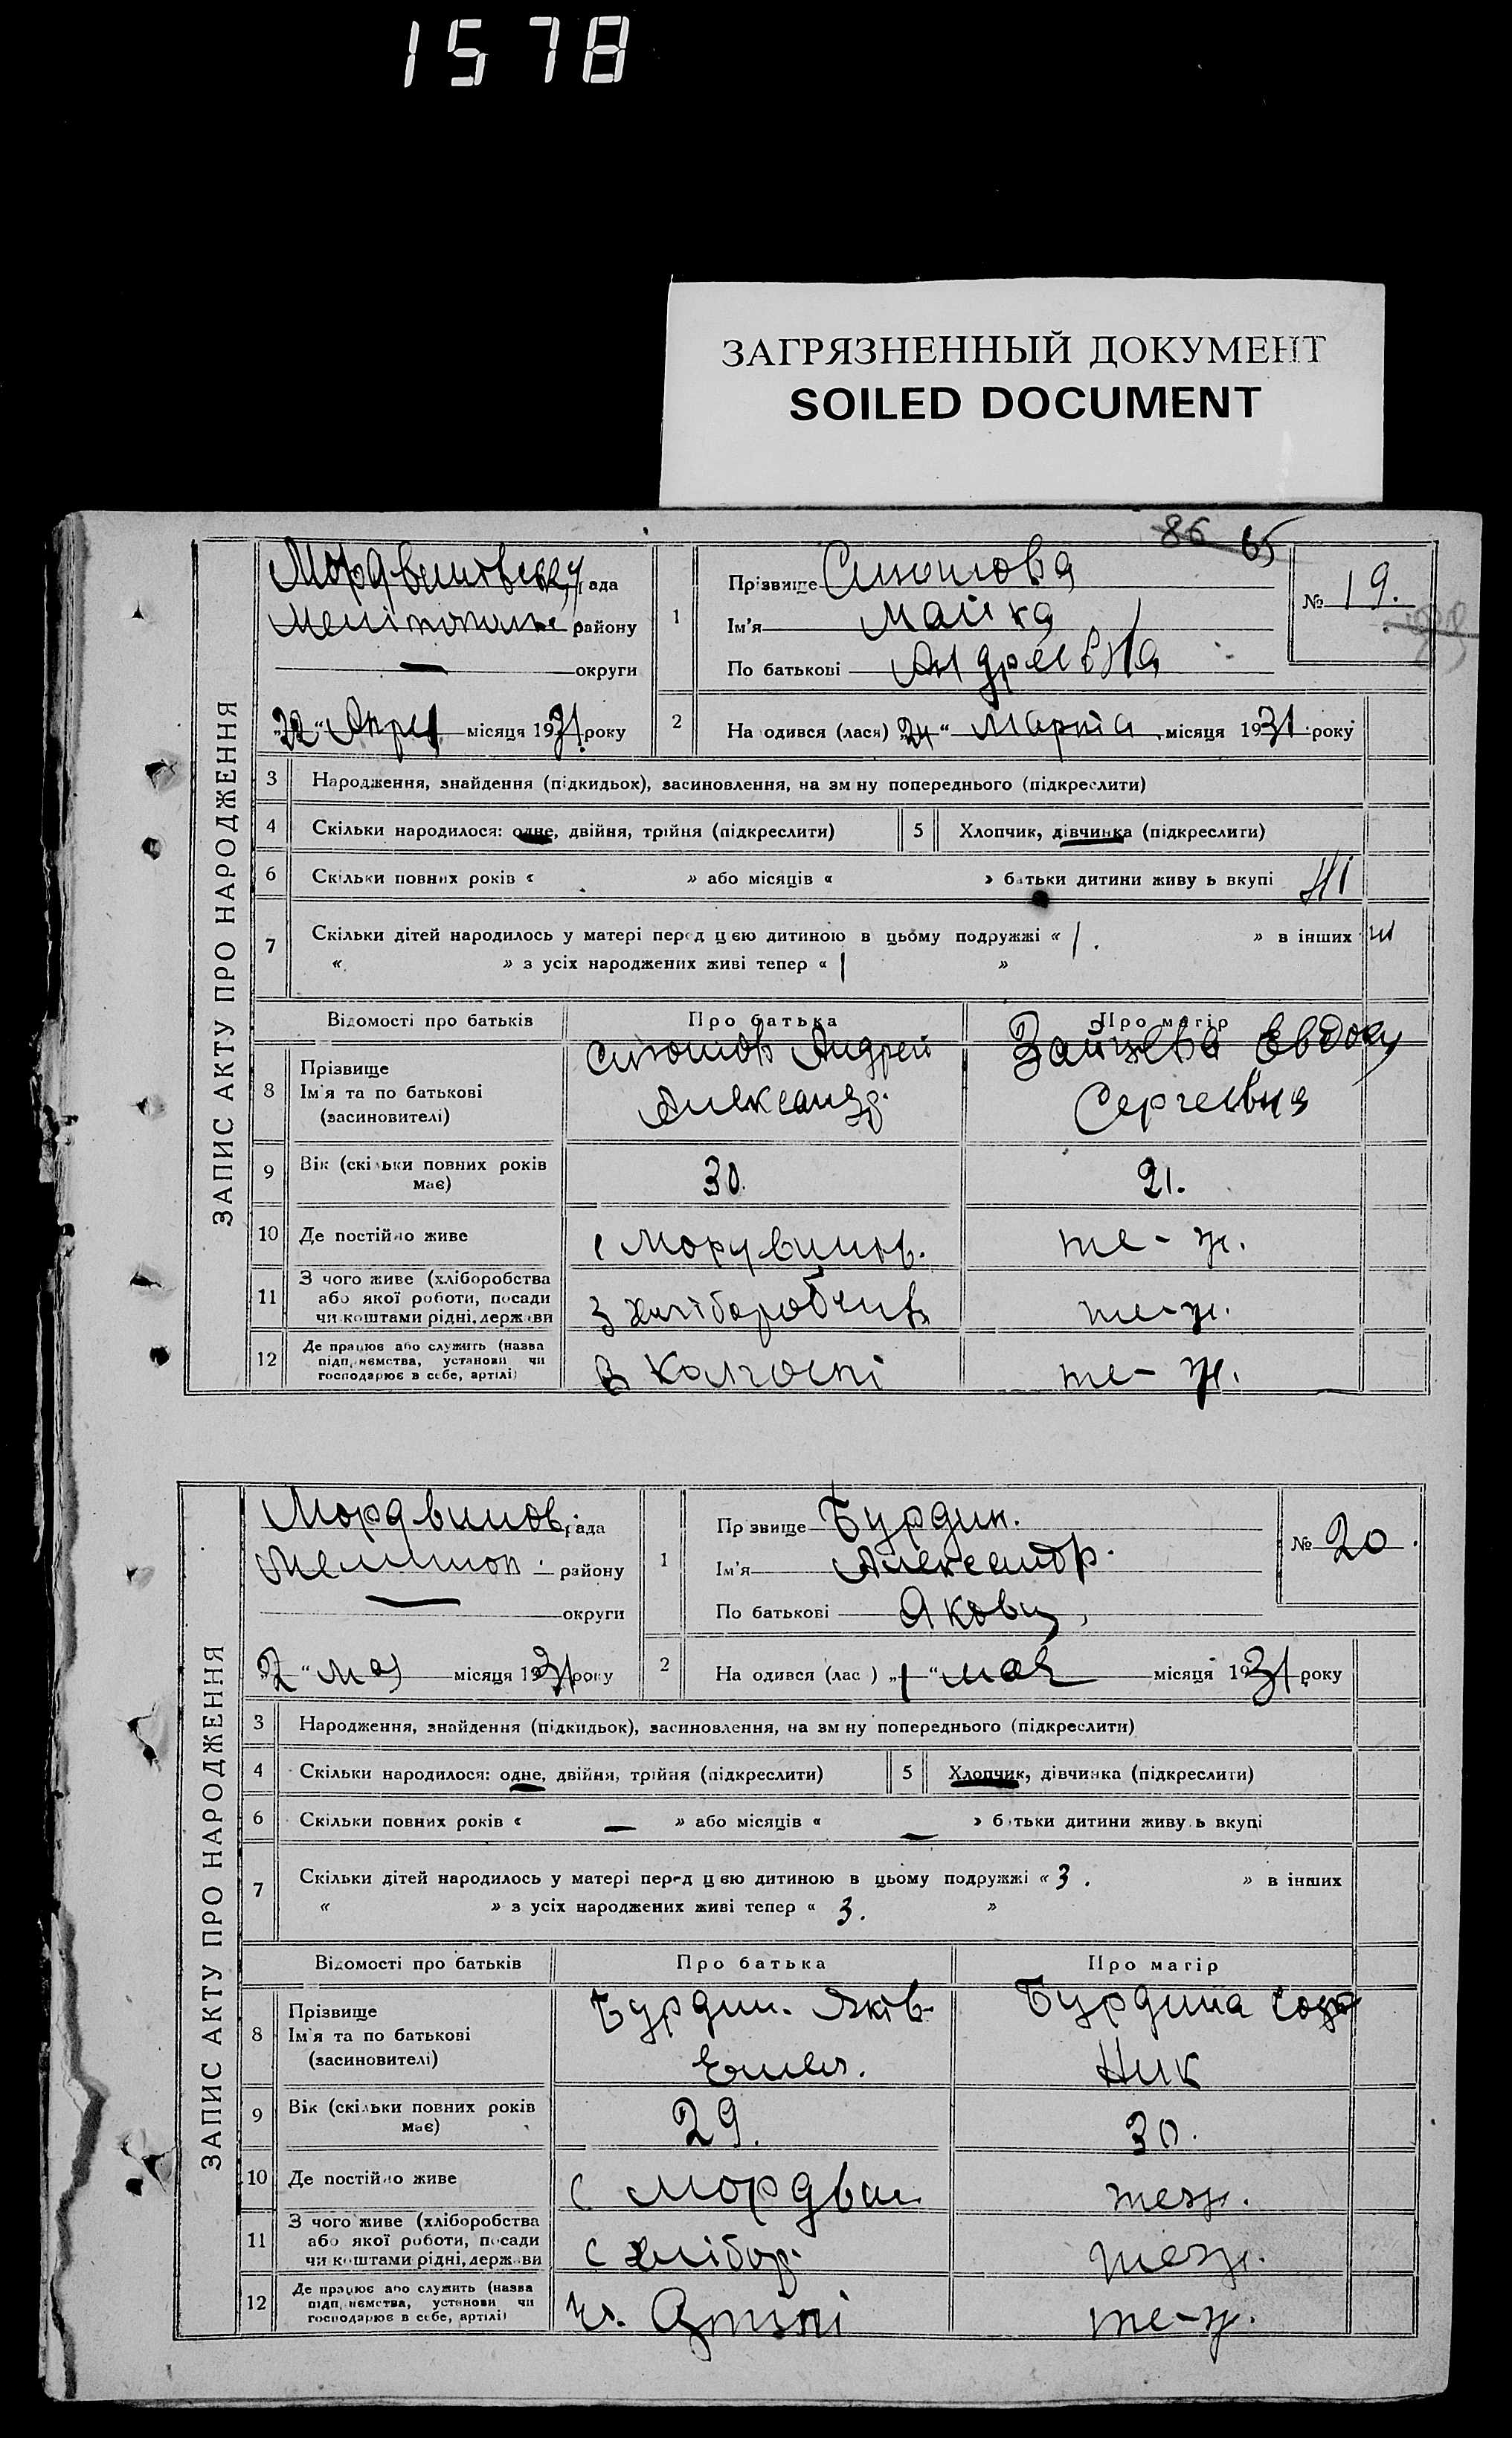 1578
ЗАГРЯЗНЕННЫЙ ДОКУМЕНТ
SOILED DOCUMENT
86 65
ЗАПИС АКТУ ПРО НАРОДЖЕННЯ
рада
району
— округи
„22“ Апрел місяця 1931 року
1
Прізвище
Ім'я Майка
По батькові Андреевна
№ 19.
2 На одився (лася) „24“ Марта місяця 1931 року
3 Народження, знайдення (підкидьох), засиновлення, на зм ну попереднього (підкреслити)
4 Скільки народилося: одне, двійня, трійня (підкреслити)
5 Хлопчик, дівчинка (підкреслити)
6 Скільки повних років « » або місяців « » батьки дитини живу ь вкупі Ні
7 Скільки дітей народилось у матері перед цією дитиною в цьому подружжі « 1. » в інших
« » з усіх народжених живі тепер « 1 »
Відомості про батьків Про батька Про матір
8 Прізвище
Ім'я та по батькові
(засиновителі)
Андрей
Александ.
Зайцева Евдок
Сергеевна
9 Вік (скільки повних років має) 30. 21.
10 Де постійно живе с Мордвинов. те-ж.
11 З чого живе (хліборобства
або якої роботи, посади
чи коштами рідні, держави
з те-ж.
12 Де працює або служить (назва
підп, иємства, установи чи
господарює в себе, артілі)
в Колгоспі те-ж.
ЗАПИС АКТУ ПРО НАРОДЖЕННЯ
Мордвинов. рада
Мелитоп. району
— округи
„2“ мая місяця 1931 року
1
Пр звище Бурдин.
Ім'я Александр.
По батькові Якови
№ 20.
2 На одився (лас ) „1“ мая місяця 1931 року
3 Народження, знайдення (підкидьок), засиновлення, на зм ну попереднього (підкреслити)
4 Скільки народилося: одне, двійня, трійня (підкреслити)
5 Хлопчик, дівчинка (підкреслити)
6 Скільки повних років « — » або місяців « — » батьки дитини живу ь вкупі
7 Скільки дітей народилось у матері перед цією дитиною в цьому подружжі « 3. » в інших
« » з усіх народжених живі тепер « 3. »
Відомості про батьків Про батька Про матір
8 Прізвище
Ім'я та по батькові
(засиновителі)
Бурдин. Яків
Емел.
Бурдина
Ник
9 Вік (скільки повних років має) 29. 30.
10 Де постійно живе с Мордвин теж.
11 З чого живе (хліборобства
або якої роботи, посади
чи коштами рідні, держави
с хлібор. теж.
12 Де працює або служить (назва
підп, иємства, установи чи
господарює в себе, артілі)
те-ж.